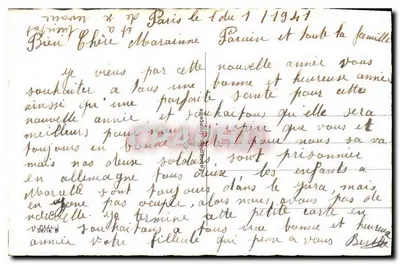 et a bientot
de v revoir
Paris le 1 du 1 / 1941
Bien Chère Marainne Parain et toute la famille
je viens par cette nouvelle année vous
souhaiter a tous une bonne et heureuse année
ainsi qu'une parfaite santé pour cette
nouvelle année et souhaitons qu'elle sera
meilleurs pour que vous
toujours en bonne pour nous sa va
mais nos deux soldats sont prisonnier
en allemagne tous deux les enfants a
Marcelle sont toujours dans le jura, mais
en pas occupé, alors nous avons pas de
nouvelle je termine cette petite carte en
vous souhaitans a tous une bonne et heureuse
année votre filleule qui pense a vous Berthe